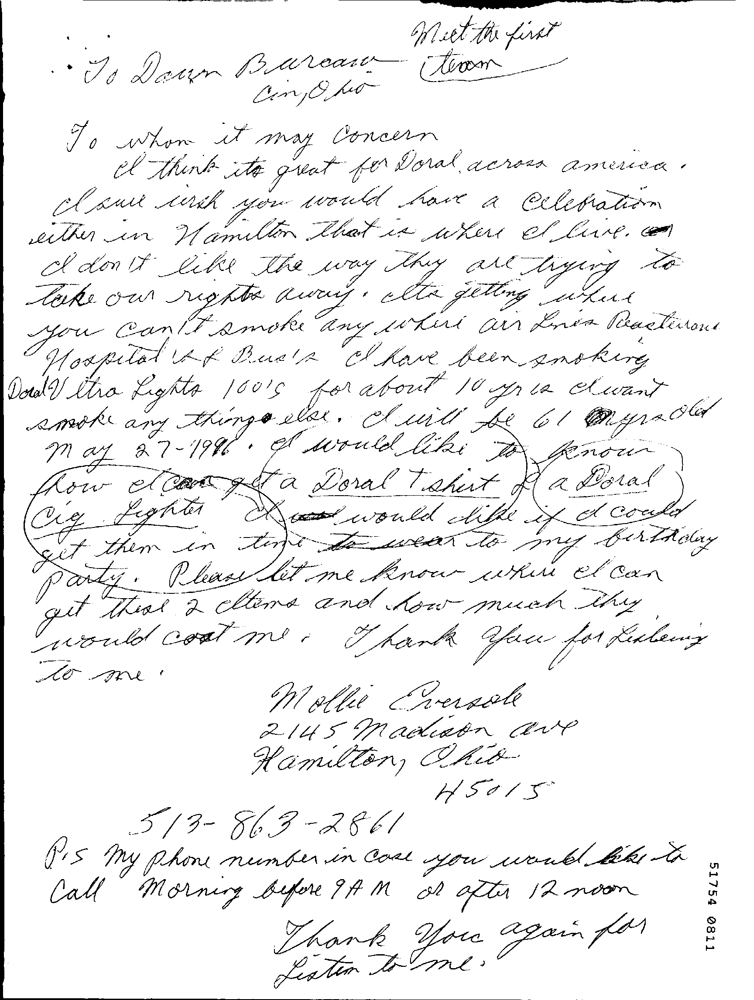 Meet the first
team
To Dawn Bureaw
Cin, Ohio
To whom it may Concern
I think its great for Doral across america.
I sure wish you would have a Celebration
either in Hamilton that is where I live.
I don't like the way they are trying to
take our rights away. Its getting where
you can't smoke any where air Lines
Hospital's & Bus's I have been smoking
Doral Ultra Lights 100's for about 10 yrs I want
smoke any thing else. I will be 61 yrs old
May 27-1996. I would like to know
how I can get a Doral T shirt & a Doral
Cig. Lighter I would like if I could
get them in time to wear to my birthday
Party. Please let me know where I can
get these 2 Items and how much they
would cost me. Thank You for Listening
to me.
Mollie Eversole
2145 Madison ave
Hamilton, Ohio
45015
513-863-2861
P.S My phone number in case you would like to
Call Morning before 9 AM or after 12 noon
Thank You again for
Listen to me.
51754 0811